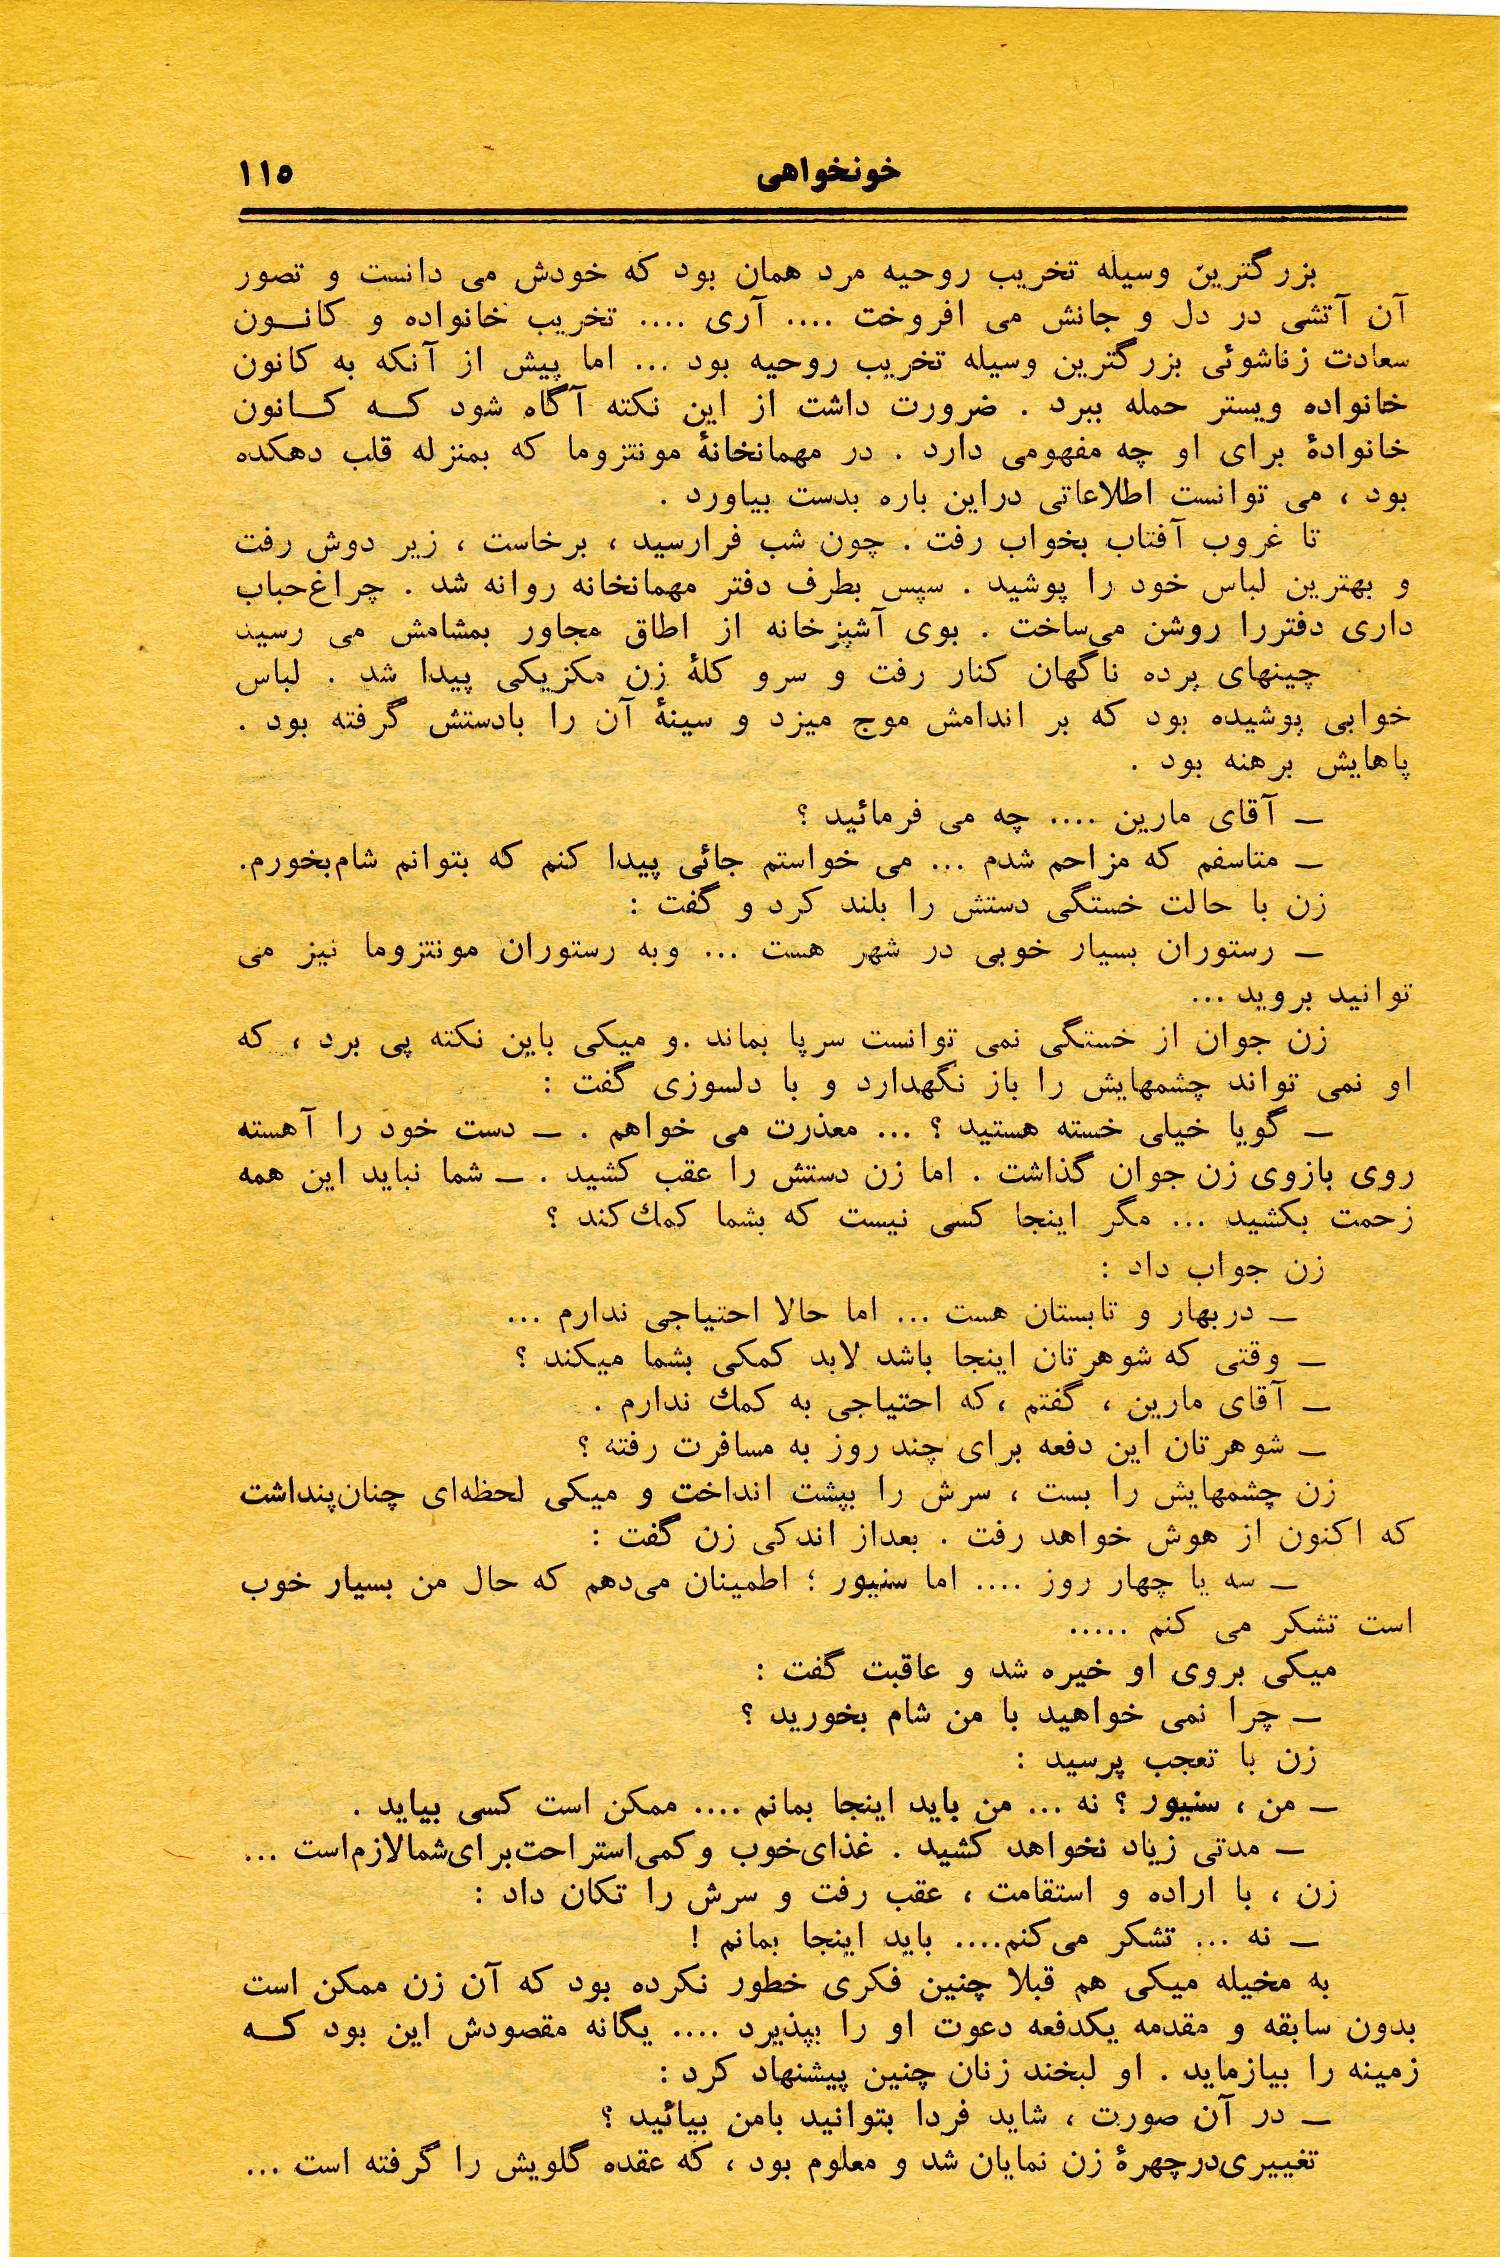 خونخواهی
۱۱۵
بزرگترین وسیله تخریب روحیه مرد همان بود که خودش می دانست و تصور
آن آتشی در دل و جانش می افروخت .... آری .... تخریب خانواده و کانـون
سعادت زناشوئی بزرگترین وسیله تخریب روحیه بود ... اما پیش از آنکه به کانون
خانواده ویستر حمله ببرد . ضرورت داشت از این نکته آگاه شود کـه کـانون
خانوادهٔ برای او چه مفهومی دارد . در مهمانخانهٔ مونتزوما که بمنزله قلب دهکده
بود ، می توانست اطلاعاتی دراین باره بدست بیاورد .
تا غروب آفتاب بخواب رفت . چون شب فرارسید ، برخاست ، زیر دوش رفت
و بهترین لباس خود را پوشید . سپس بطرف دفتر مهمانخانه روانه شد . چراغ‌حباب
داری دفتررا روشن می‌ساخت . بوی آشپزخانه از اطاق مجاور بمشامش می رسید
چینهای پرده ناگهان کنار رفت و سرو کلهٔ زن مکزیکی پیدا شد . لباس
خوابی پوشیده بود که بر اندامش موج میزد و سینهٔ آن را بادستش گرفته بود .
پاهایش برهنه بود .
ـ آقای مارین .... چه می فرمائید ؟
ـ متاسفم که مزاحم شدم ... می خواستم جائی پیدا کنم که بتوانم شام‌بخورم.
زن با حالت خستگی دستش را بلند کرد و گفت :
ـ رستوران بسیار خوبی در شهر هست ... وبه رستوران مونتزوما نیز می
توانید بروید ...
زن جوان از خستگی نمی توانست سرپا بماند .و میکی باین نکته پی برد ، که
او نمی تواند چشمهایش را باز نگهدارد و با دلسوزی گفت :
ـ گویا خیلی خسته هستید ؟ ... معذرت می خواهم . ـ دست خود را آهسته
روی بازوی زن جوان گذاشت . اما زن دستش را عقب کشید . ـ شما نباید این همه
زحمت بکشید ... مگر اینجا کسی نیست که بشما کمك‌کند ؟
زن جواب داد :
ـ دربهار و تابستان هست ... اما حالا احتیاجی ندارم ...
ـ وقتی که شوهرتان اینجا باشد لابد کمکی بشما میکند ؟
ـ آقای مارین ، گفتم ،که احتیاجی به کمك ندارم .
ـ شوهرتان این دفعه برای چند روز به مسافرت رفته ؟
زن چشمهایش را بست ، سرش را بپشت انداخت و میکی لحظه‌ای چنان‌پنداشت
که اکنون از هوش خواهد رفت . بعداز اندکی زن گفت :
ـ سه یا چهار روز .... اما سنیور ؛ اطمینان می‌دهم که حال من بسیار خوب
است تشکر می کنم .....
میکی بروی او خیره شد و عاقبت گفت :
ـ چرا نمی خواهید با من شام بخورید ؟
زن با تعجب پرسید :
ـ من ، سنیور ؟ نه ... من باید اینجا بمانم .... ممکن است کسی بیاید .
ـ مدتی زیاد نخواهد کشید . غذای‌خوب وکمی‌استراحت‌برای‌شمالازم‌است ...
زن ، با اراده و استقامت ، عقب رفت و سرش را تکان داد :
ـ نه ... تشکر می‌کنم.... باید اینجا بمانم !
به مخیله میکی هم قبلا چنین فکری خطور نکرده بود که آن زن ممکن است
بدون سابقه و مقدمه یکدفعه دعوت او را بپذیرد .... یگانه مقصودش این بود کـه
زمینه را بیازماید . او لبخند زنان چنین پیشنهاد کرد :
ـ در آن صورت ، شاید فردا بتوانید بامن بیائید ؟
تغییری‌درچهرهٔ زن نمایان شد و معلوم بود ، که عقده گلویش را گرفته است ...